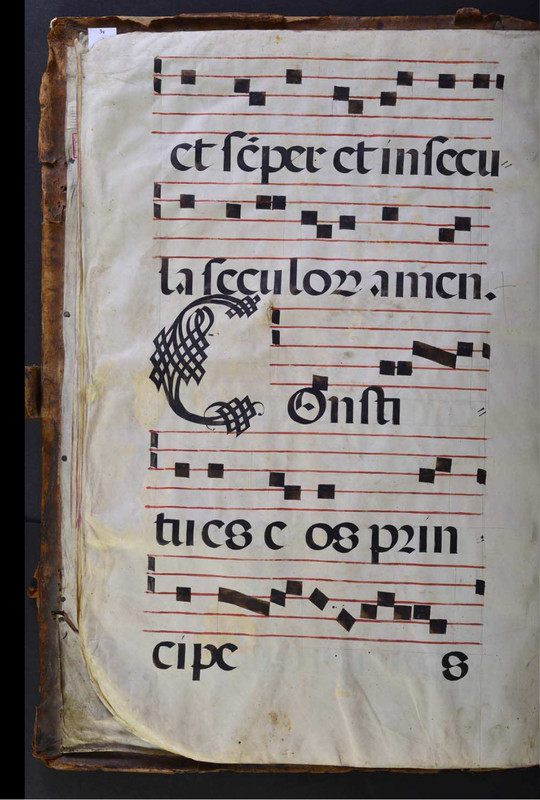 et sẽper et in secu
la seculoꝝ amen.
Consti
tues e os prin
cipe s